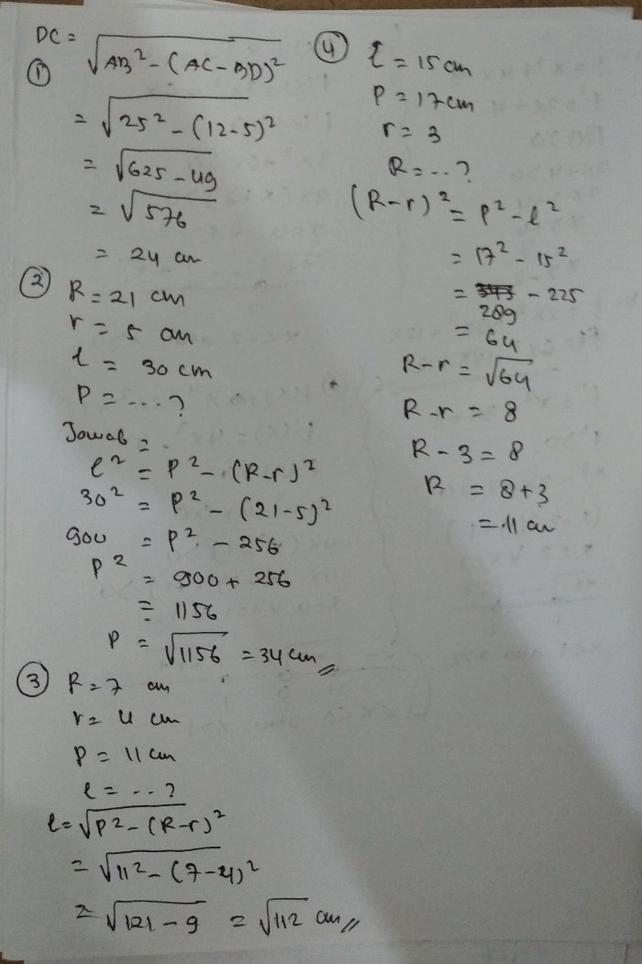 ①
DC = √AB² - (AC - BD)²
= √25² - (12-5)²
= √625 - 49
= √576
= 24 cm
② R = 21 cm
r = 5 cm
l = 30 cm
P = ...?
Jawab =
l² = P² - (R-r)²
30² = P² - (21-5)²
900 = P² - 256
P² = 900 + 256
= 1156
P = √1156 = 34 cm //
③ R = 7 cm
r = 4 cm
P = 11 cm
l = ...?
l = √P² - (R-r)²
= √11² - (7-4)²
= √121 - 9 = √112 cm //
④ l = 15 cm
P = 17 cm
r = 3
R = ...?
(R-r)² = P² - l²
= 17² - 15²
= 289 - 225
= 64
R-r = √64
R-r = 8
R - 3 = 8
R = 8+3
= 11 cm